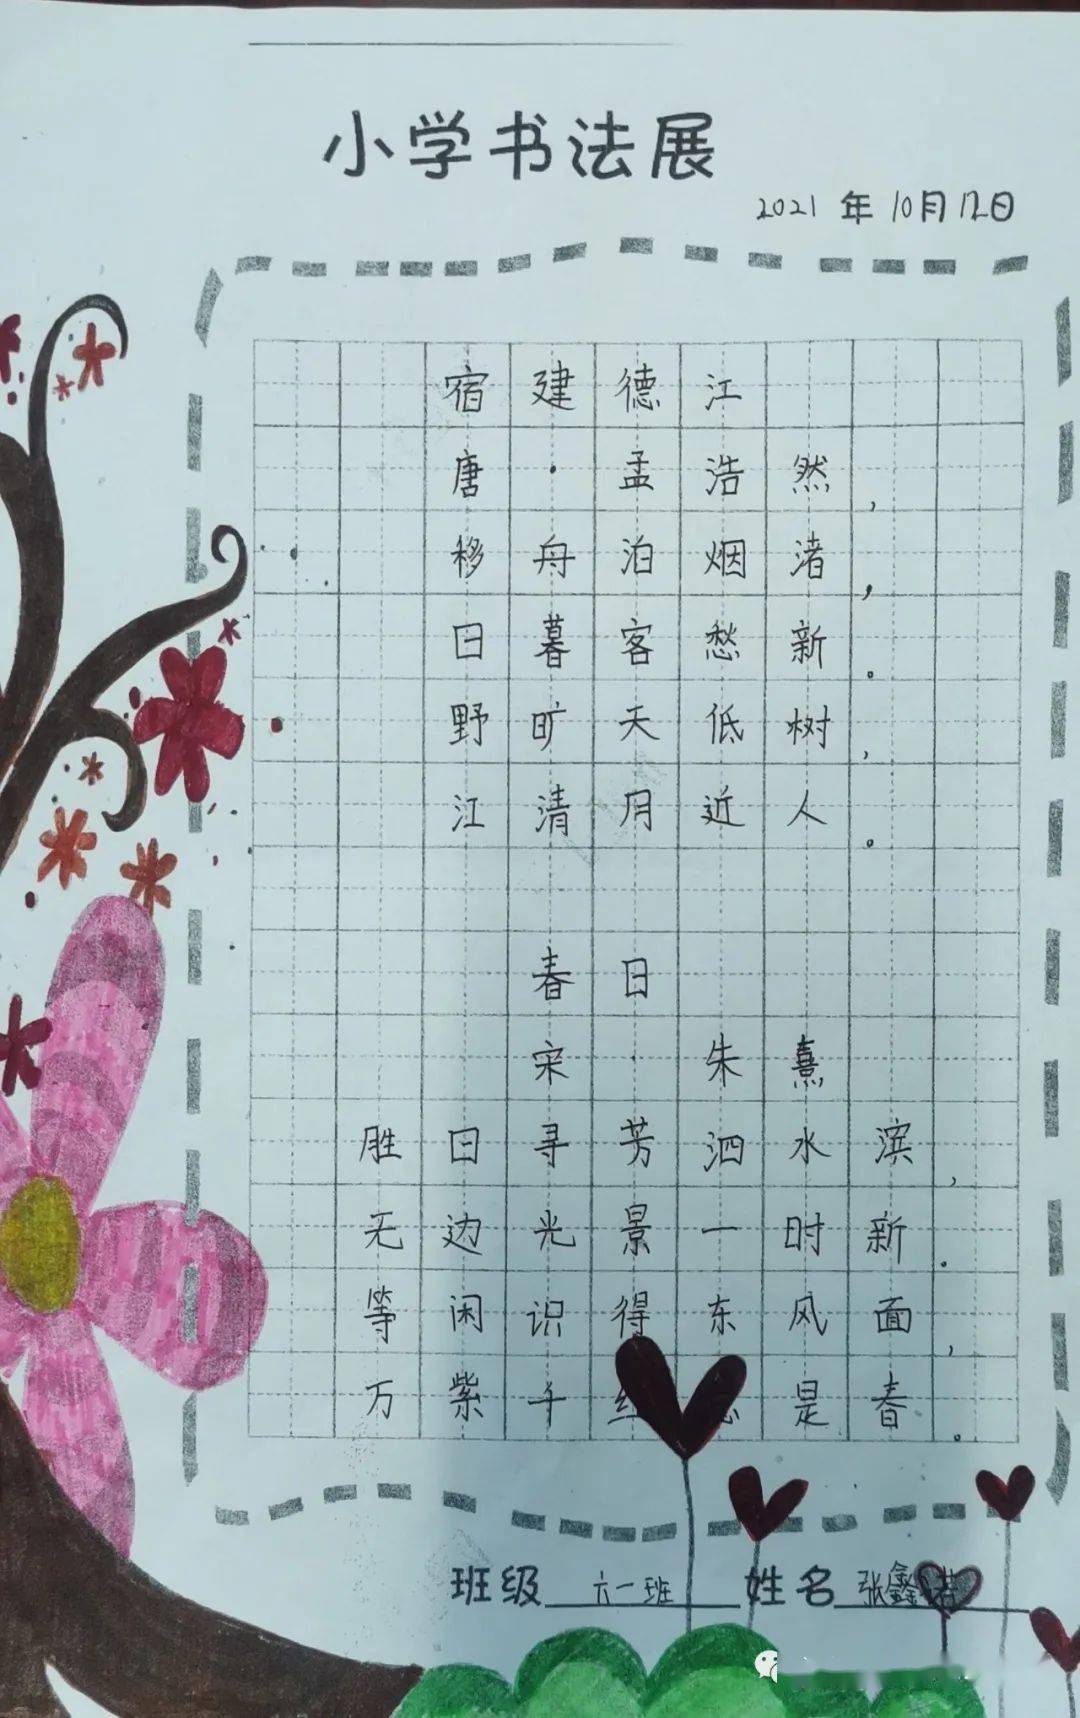 小学书法展
2021 年 10月 12日
宿建德江
唐·孟浩然，
移舟泊烟渚，
日暮客愁新。
野旷天低树，
江清月近人。
春日
宋·朱熹
胜日寻芳泗水滨，
无边光景一时新。
等闲识得东风面，
万紫千 是春。
班级 六一班 姓名 张鑫